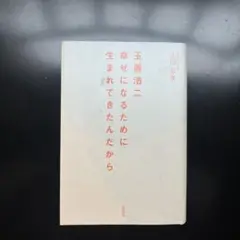 玉置浩二
幸せになるために
生まれてきたんだから